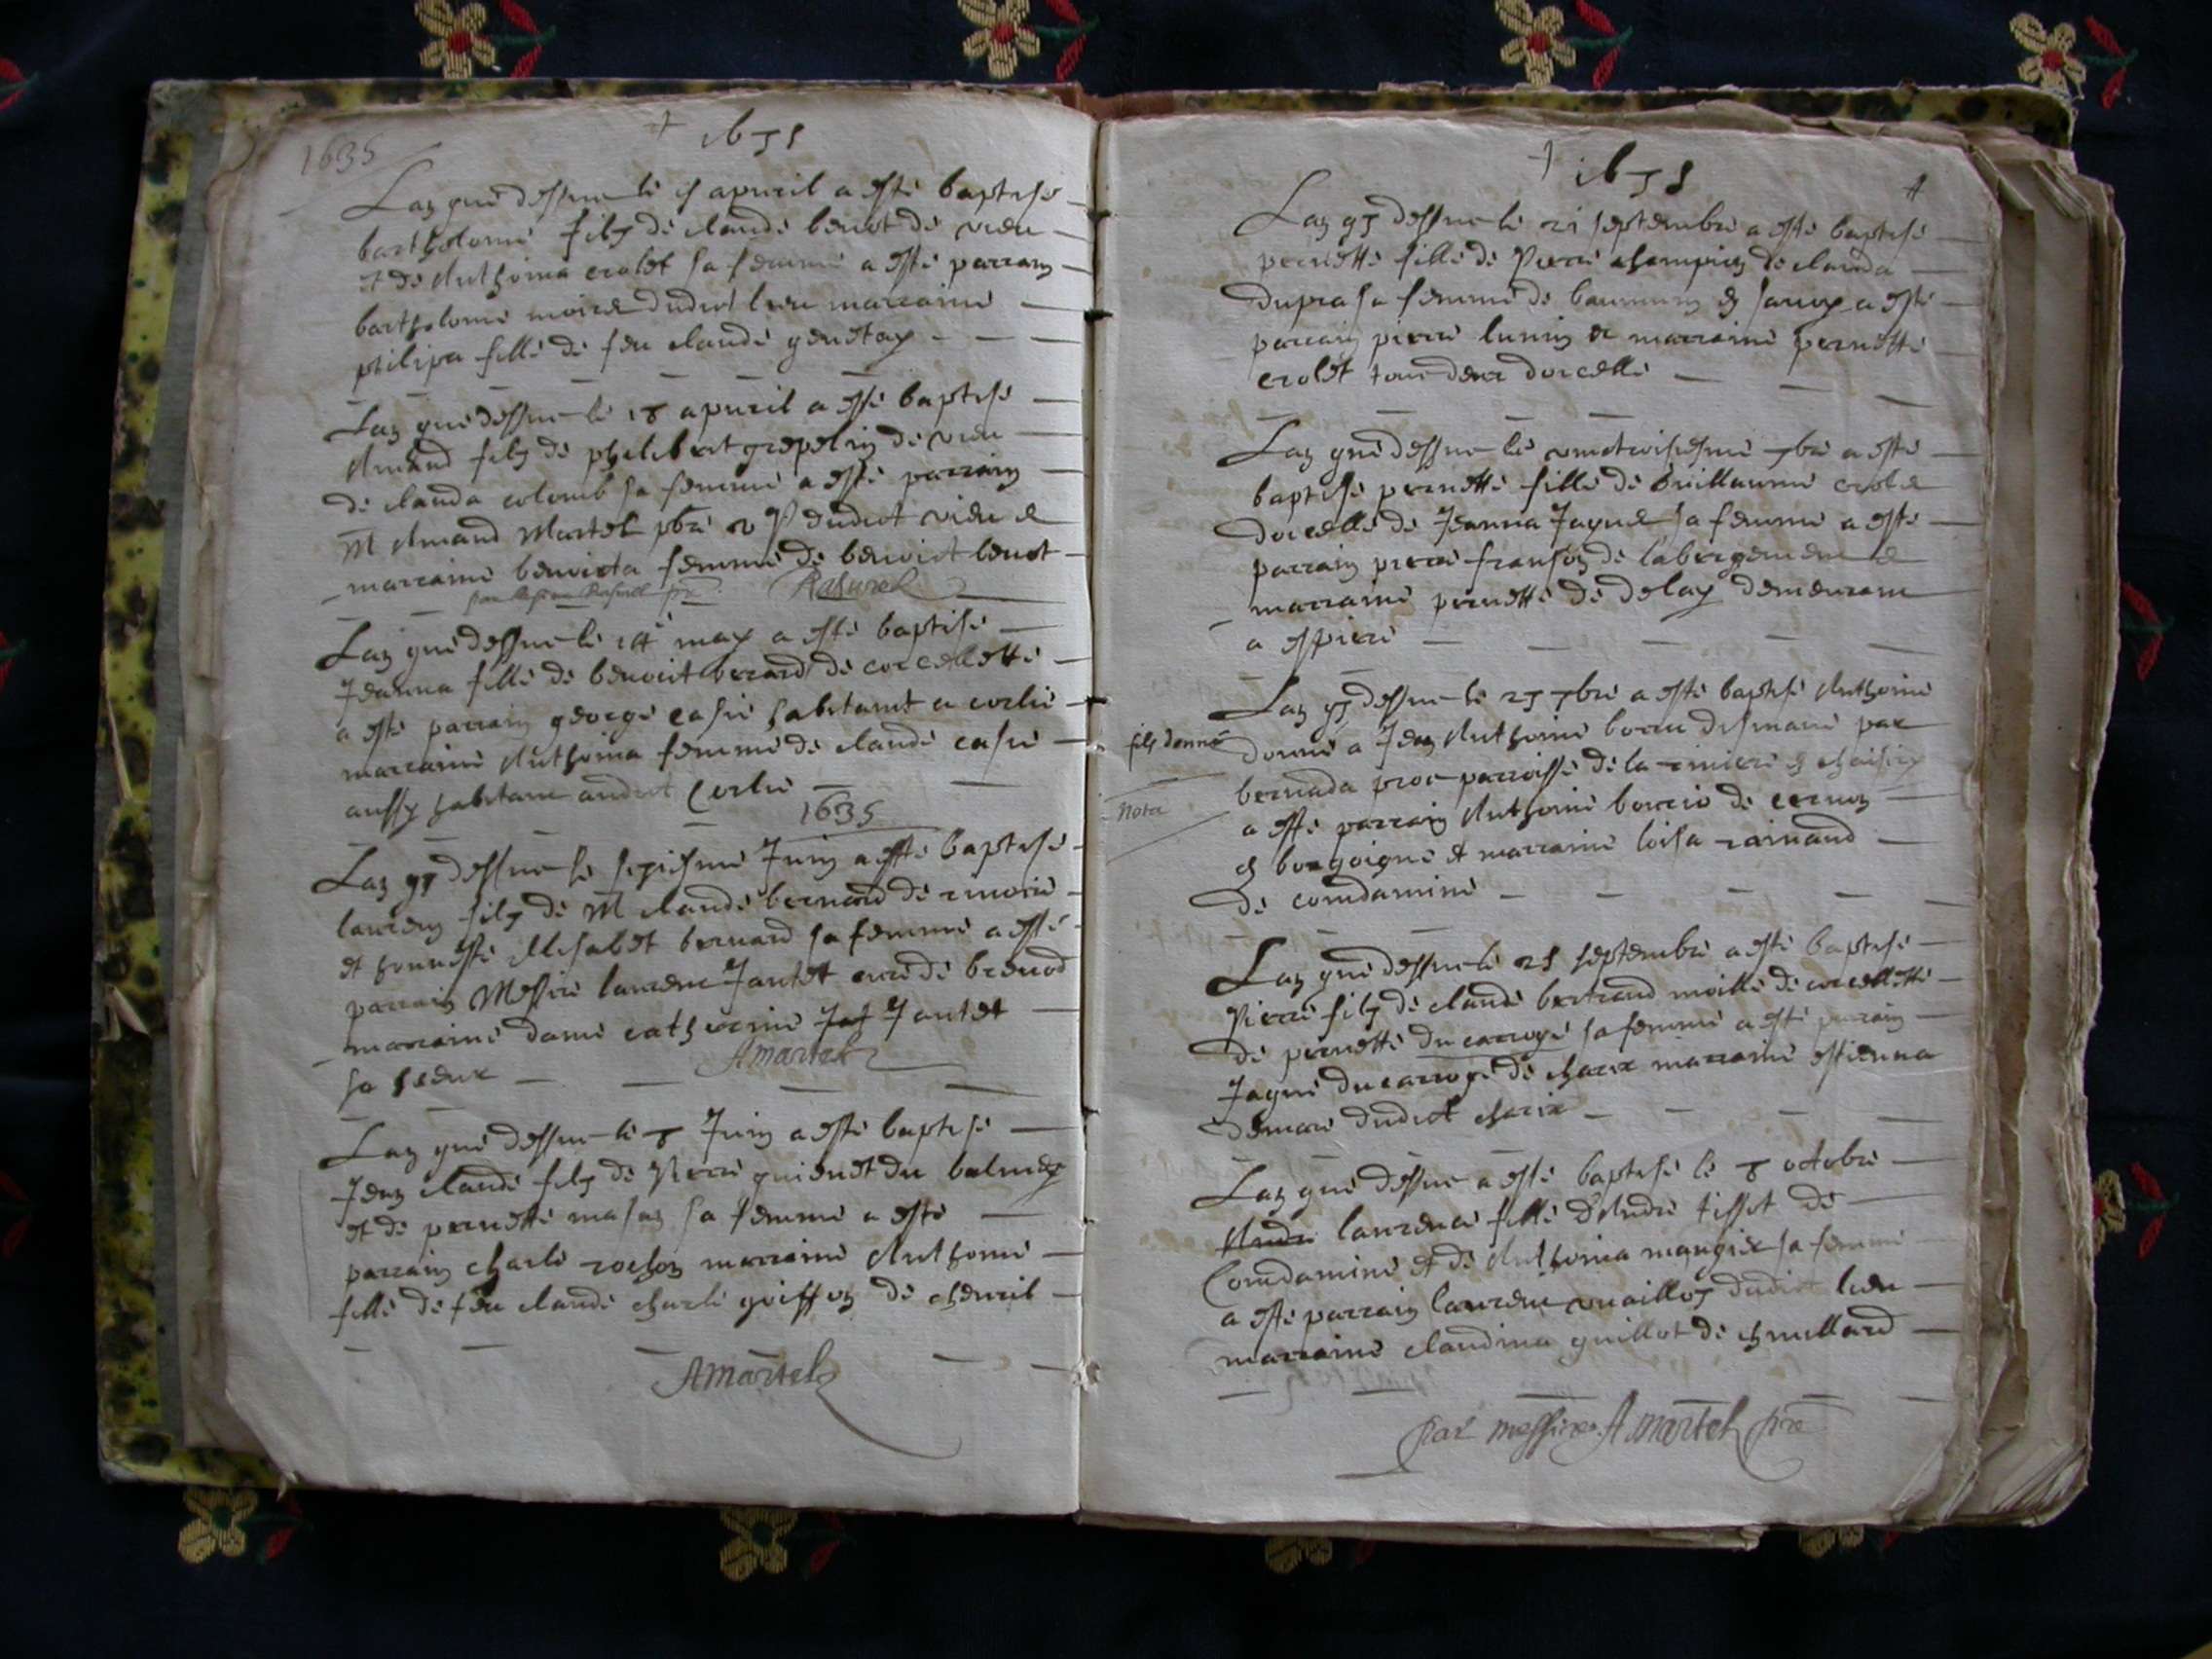 1635
1635
Lan que dessus le is apvril a esté baptisé
bartholomé filz de claude benot de vieu
et de Anthoina crolet sa femme a esté parrain
bartholomé dudict lieu marraine
philipa fille de feu claude genetay
Lan que dessus le 18 apvril a esté baptisé
Amand filz de philibert grepelin de vieu
de clauda colomb sa femme a esté parrain
M Amand Martel pbre dudict vieu et
marraine benoista femme de benoict benot
par pre Rasurel
Lan que dessus le may a esté baptisé
Jeanna fille de benoict berard de corcellette
a esté parrain george casie habitant a corlie
marraine Anthoina femme de claude casie
aussy habitant audict Corlie
1635
Lan que dessus le Juin a esté baptisé
laurens filz de M claude bernard de
et honneste Elisabet bernard sa femme a esté
parrain Messire laurent Jantet curé de brenod
marraine dame catherine Jantet
sa seur
AMartel
Lan que dessus le 8 Juin a esté baptisé
Jean claude filz de Pierre guienet du balmey
et de pernette masan sa femme a esté
parrain charle rochon marraine Anthoine
fille de feu claude charle goiffon de chevril
AMartel
1635
4
Lan que dessus le 21 septembre a esté baptisé
pernette fille de Pierre champion de clauda
dupra sa femme de en savoy a esté
parrain pierre lunin et marraine pernette
crolet tous deux dorcelle
Lan que dessus le vintroisiesme 7bre a esté
baptisé pernette fille de Guillaume crolet
dorcelle de Jeanna Jaque sa femme a esté
parrain pierre franson de labergement et
marraine pernette de delay demeurant
a espierre
Lan que dessus le 25 7bre a esté baptisé Anthoine
filz donné
donné a Jean Anthoine borru disinave par
bernada paroisse de la riviere en
Nota
a esté parrain Anthoine de cernon
en borgoigne et marraine loisa rainaud
de condamine
Lan que dessus le 25 septembre a esté baptisé
Pierre filz de claude bertrand moille de corcellette
de pernette du carroge sa femme a esté parrain
Jaque ducarroge de charix marraine estienna
demare dudict charix
Lan que dessus a esté baptisé le 8 octobre
Andre laurence fille D'Andre tissot de
Condamine et de Anthoina mangier sa femme
a esté parrain laurent dudict lieu
marraine claudina guillot de chevillard
par messire A Martel pre